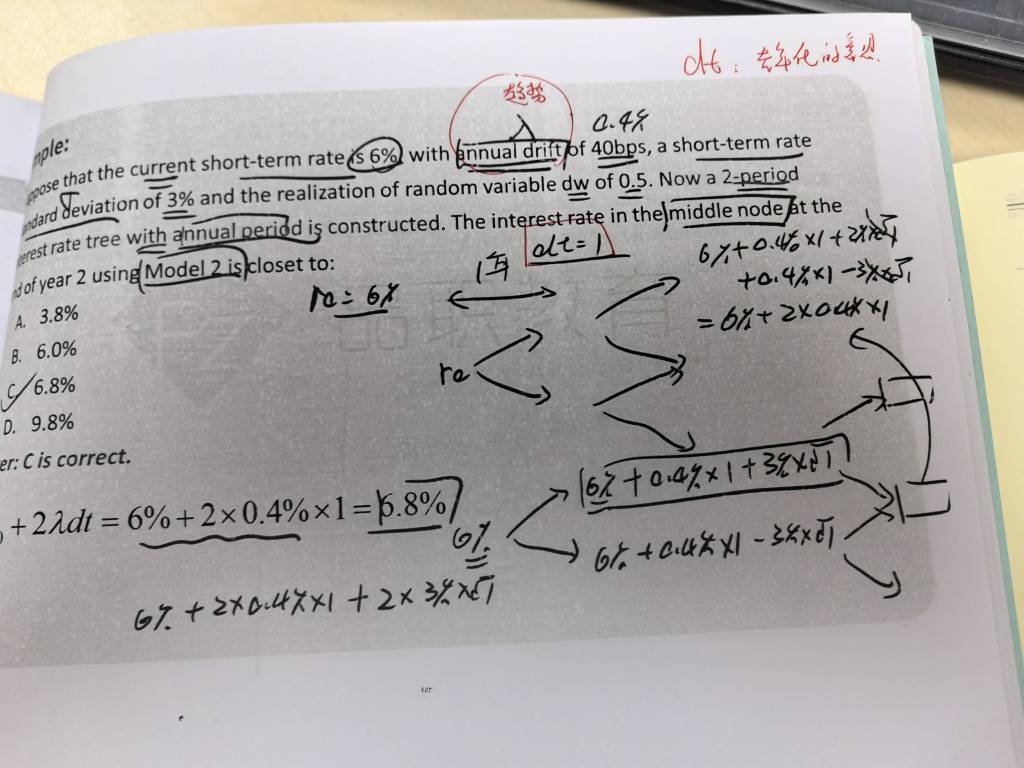 dt: 去年化的意思
趋势
0.4%
mple:
ppose that the current short-term rate is 6% with annual drift of 40bps, a short-term rate
ndard deviation of 3% and the realization of random variable dw of 0.5. Now a 2-period
erest rate tree with annual period is constructed. The interest rate in the middle node at the
d of year 2 using Model 2 is closet to:
1年
dt=1
6%+0.4%×1+3%×√1
+0.4%×1-3%×√1
=6%+2×0.4%×1
r0=6%
A. 3.8%
B. 6.0%
C. 6.8%
D. 9.8%
r0
er: C is correct.
6%+0.4%×1+3%×√1
0 + 2λdt = 6% + 2×0.4%×1 = 6.8%
6%
6%+0.4%×1-3%×√1
6%+2×0.4%×1+2×3%×√1
品职教育